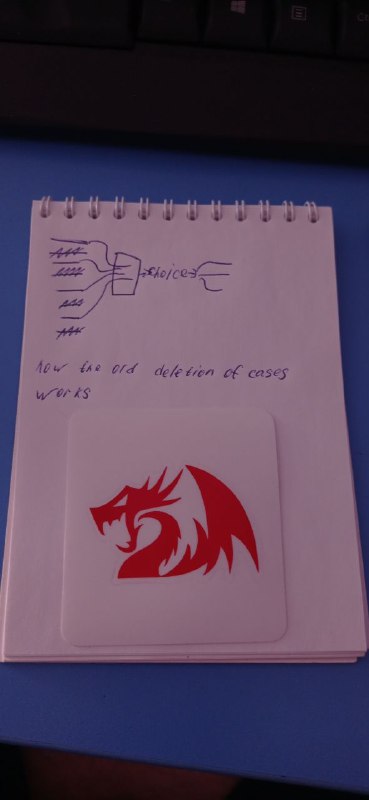 choices
how the old deletion of cases
works